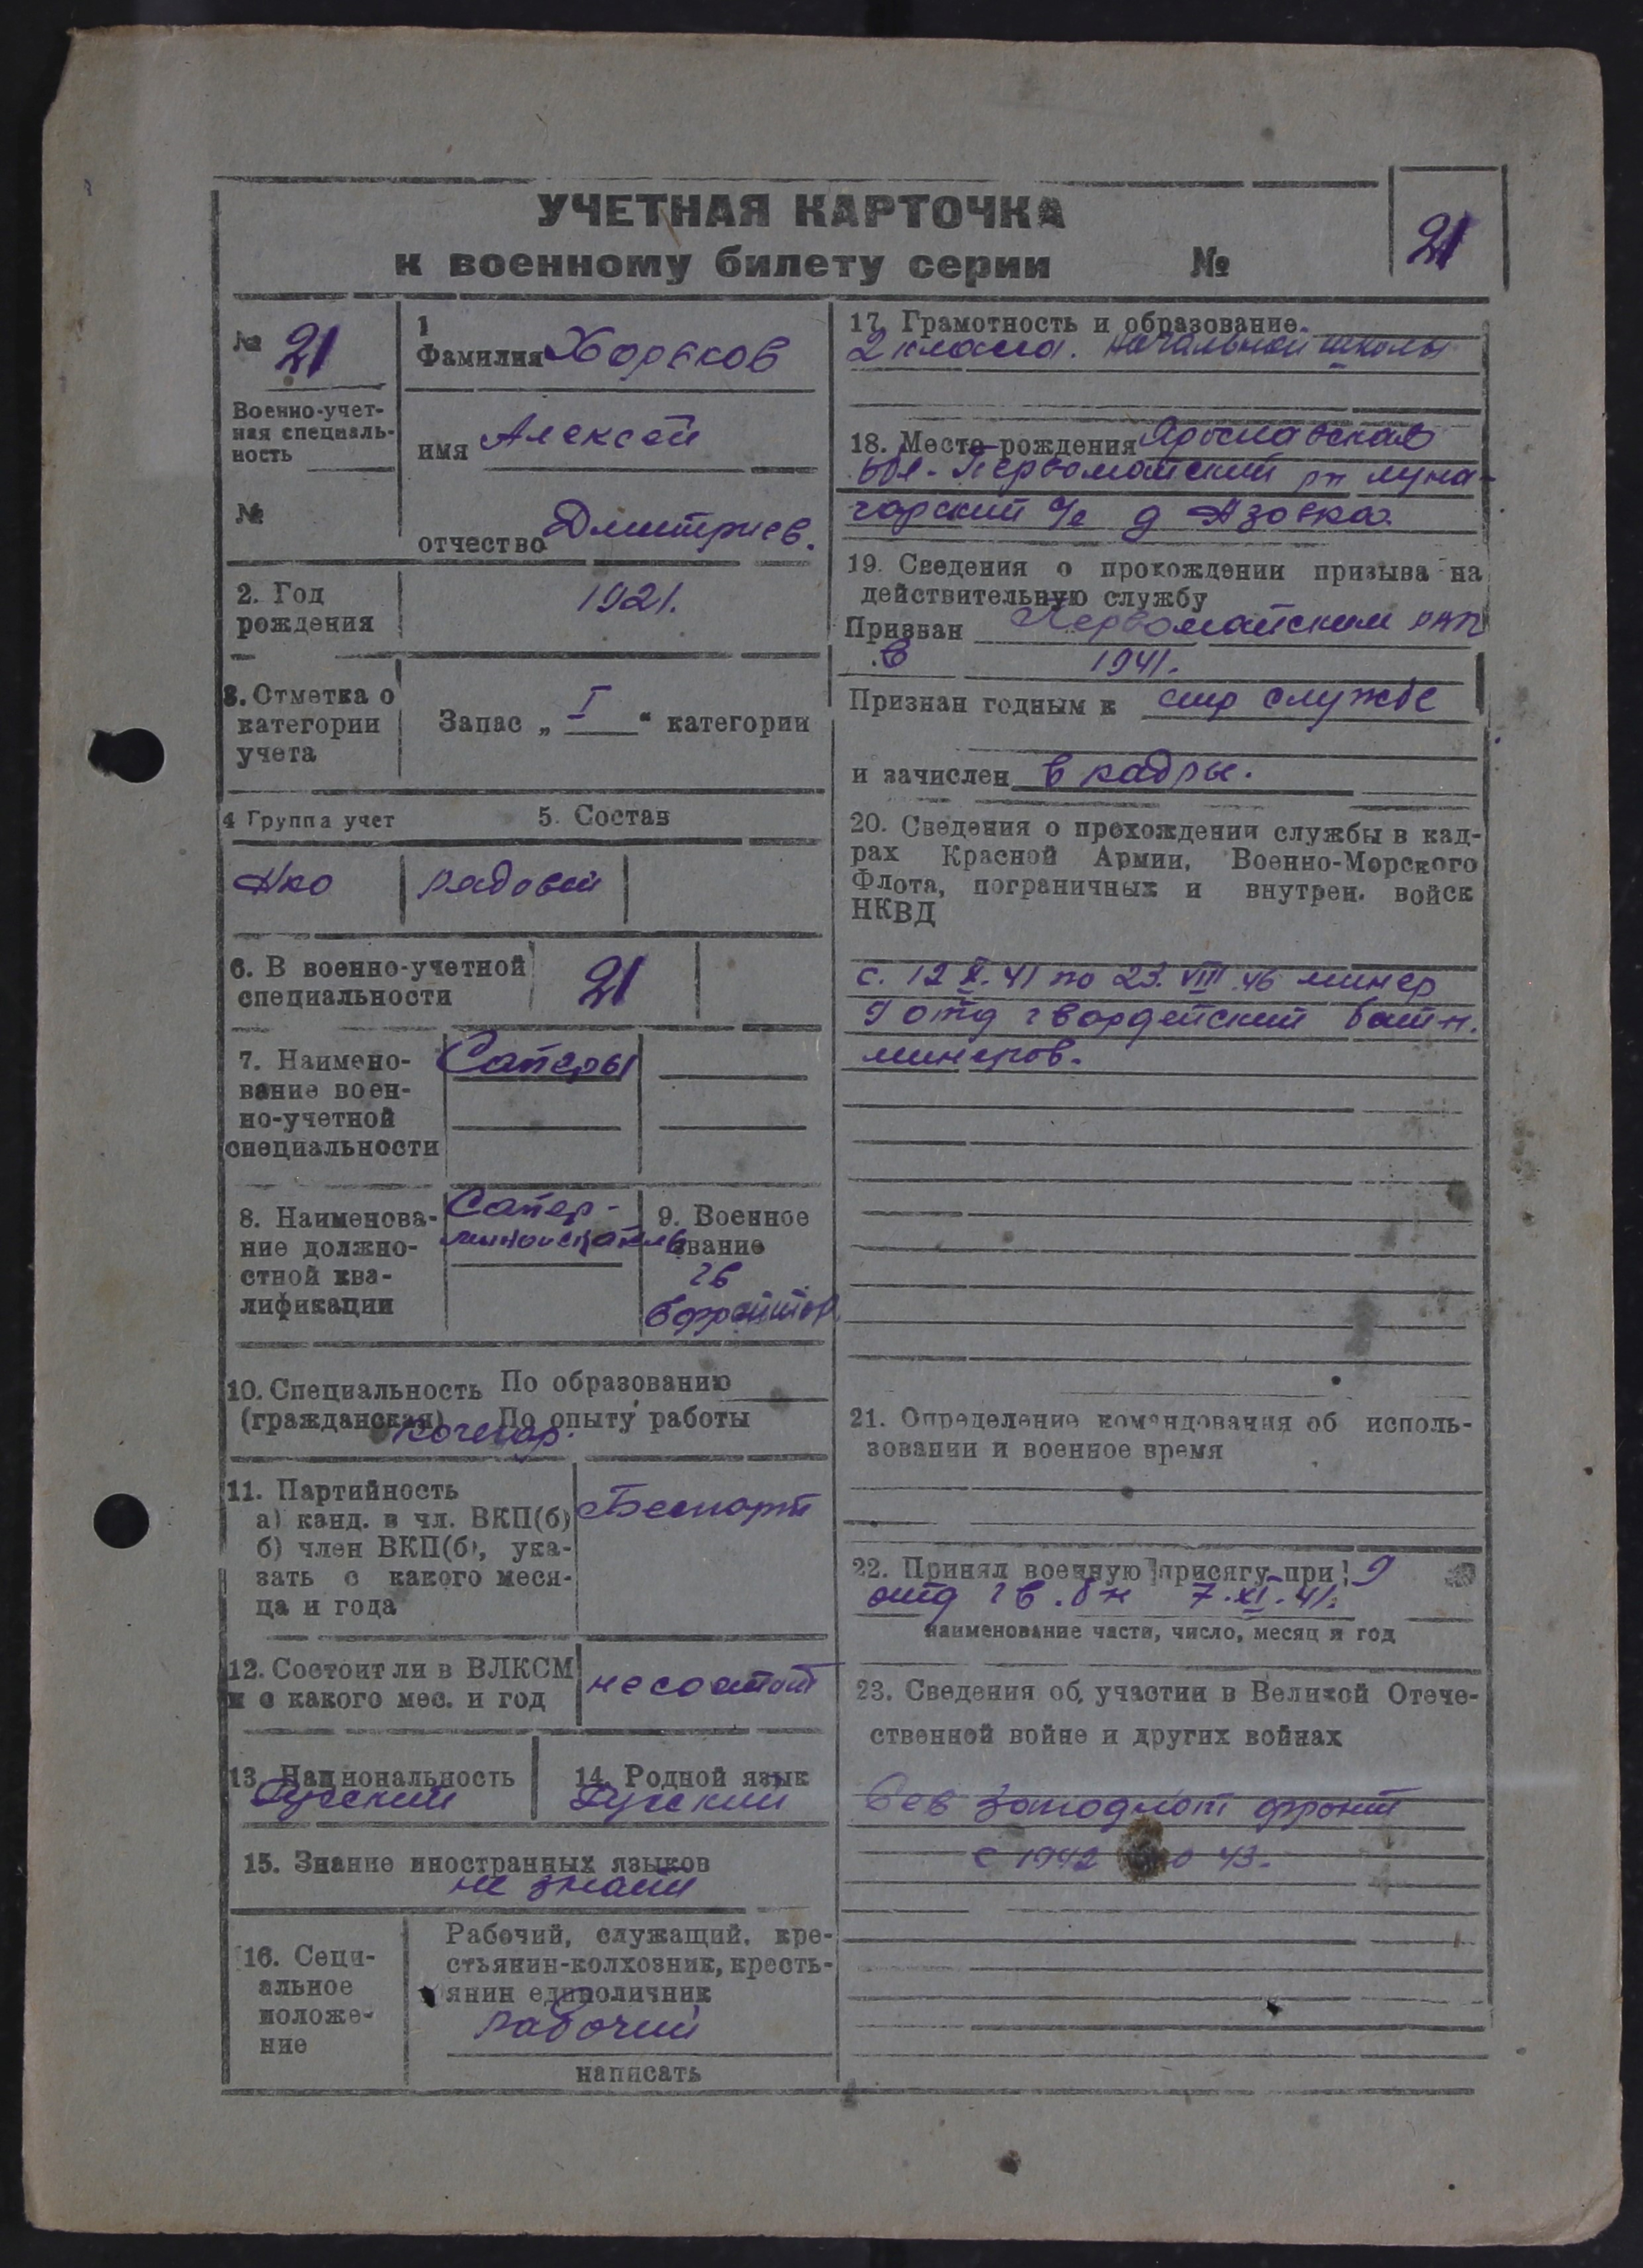 УЧЕТНАЯ КАРТОЧКА
к военному билету серии №
21
№ 21
Военно-учет-
ная специаль-
ность
№
1
Фамилия Хорьков
имя Алексей
отчество Дмитриев.
2. Год
рождения
1921.
3. Отметка о
категории
учета
Запас „ I “ категории
4 Группа учет
5. Состав
рядовой
6. В военно-учетной
специальности
21
7. Наимено-
вание воен-
но-учетной
специальности
Саперы
8. Наименова-
ние должно-
стной ква-
лификации
Сапер-
миноискатель
9. Военное
звание
гв
ефрейтор
10. Специальность По образованию
(гражданская) По опыту работы
кочегар.
11. Партийность
а) канд. в чл. ВКП(б)
б) член ВКП(б), ука-
зать с какого меся-
ца и года
Беспарт
12. Состоит ли в ВЛКСМ
и с какого мес. и год
не состоит
13. Национальность
Русский
14. Родной язык
Русский
15. Знание иностранных языков
не знает
16. Соци-
альное
положе-
ние
Рабочий, служащий, кре-
стьянин-колхозник, кресть-
янин единоличник
рабочий
написать
17. Грамотность и образование.
2 класса. начальной школы
18. Место рождения Ярославская
обл. Первомайский рн Луна-
чарский с/с д Азовка
19. Сведения о прохождении призыва на
действительную службу
Призван Первомайским
в 1941.
Признан годным к стр службе
и зачислен в кадры.
20. Сведения о прохождении службы в кад-
рах Красной Армии, Военно-Морского
Флота, пограничных и внутрен. войск
НКВД
с. 12 X. 41 по 23. VIII. 46 минер
9 отд гвардейский бат-н.
минеров.
21. Определение командования об исполь-
зовании и военное время
22. Принял военную присягу при 9
отд гв. б-н 7. XI. 41.
наименование части, число, месяц и год
23. Сведения об участии в Великой Отече-
ственной войне и других войнах
Сев Западной фронт
с 1942 по 43.